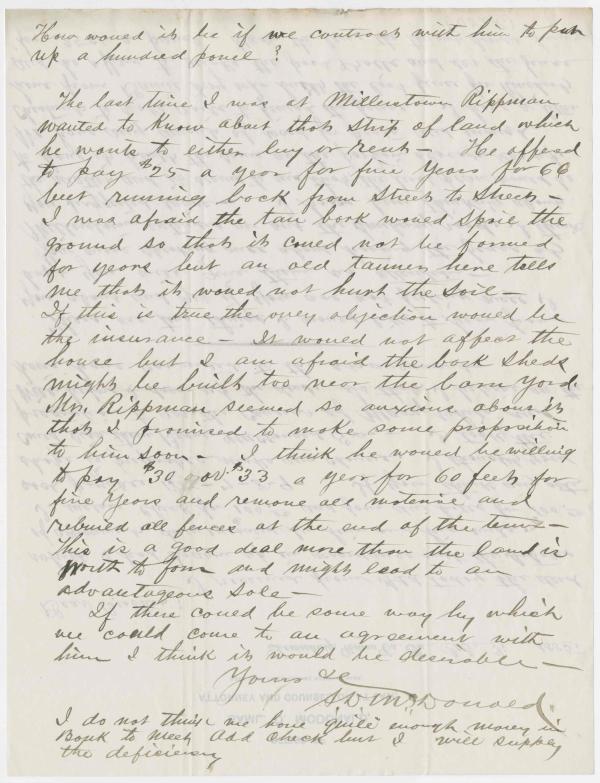 How would it be if we contract with him to put
up a hundred panel?
The last time I was at Millerstown Rippman
wanted to know about that strip of land which
he wants to either buy or rent – He offered
to pay $25 a year for five years for 60
feet running back from street to street –
I was afraid the tan bark would spoil the
ground so that it could not be farmed
for years but an old tanner here tells
me that it would not hurt the soil –
If this is true the only objection would be
the insurance – It would not affect the
house but I am afraid the bark sheds
might be built too near the barn yard.
Mr. Rippman seemed so anxious about it
that I promised to make some proposition
to him soon – I think he would be willing
to pay $30 or $33 a year for 60 feet for
five years and remove all material and
rebuild all fences at the end of the term –
This is a good deal more than the land is
worth to farm and might lead to an
advantageous sale –
If there could be some way by which
we could come to an agreement with
him I think it would be desirable –
Yours &c
McDonald
I do not think we have quite enough money in
Bank to meet Add check but I will supply
the deficiency